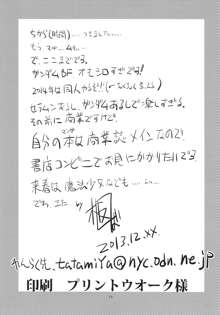 ちから(時間)……つきました……
もう…ゲームむ…
で、ここまでです。
ガンダムBF オモシロすぎです!
2014年は同人やるぞ!!
セブンソードら、ガンダムあるしで楽しすぎる。
その前に商業ですけど。
自分の本は商業誌メインなので
書店コンビニでお見にかかりたいです
来春は魔法少女なども……
でわ、また by
2013.12.xx
れんらく先 tatamiya@nyc.odn.ne.jp
印刷 プリントウオーク様